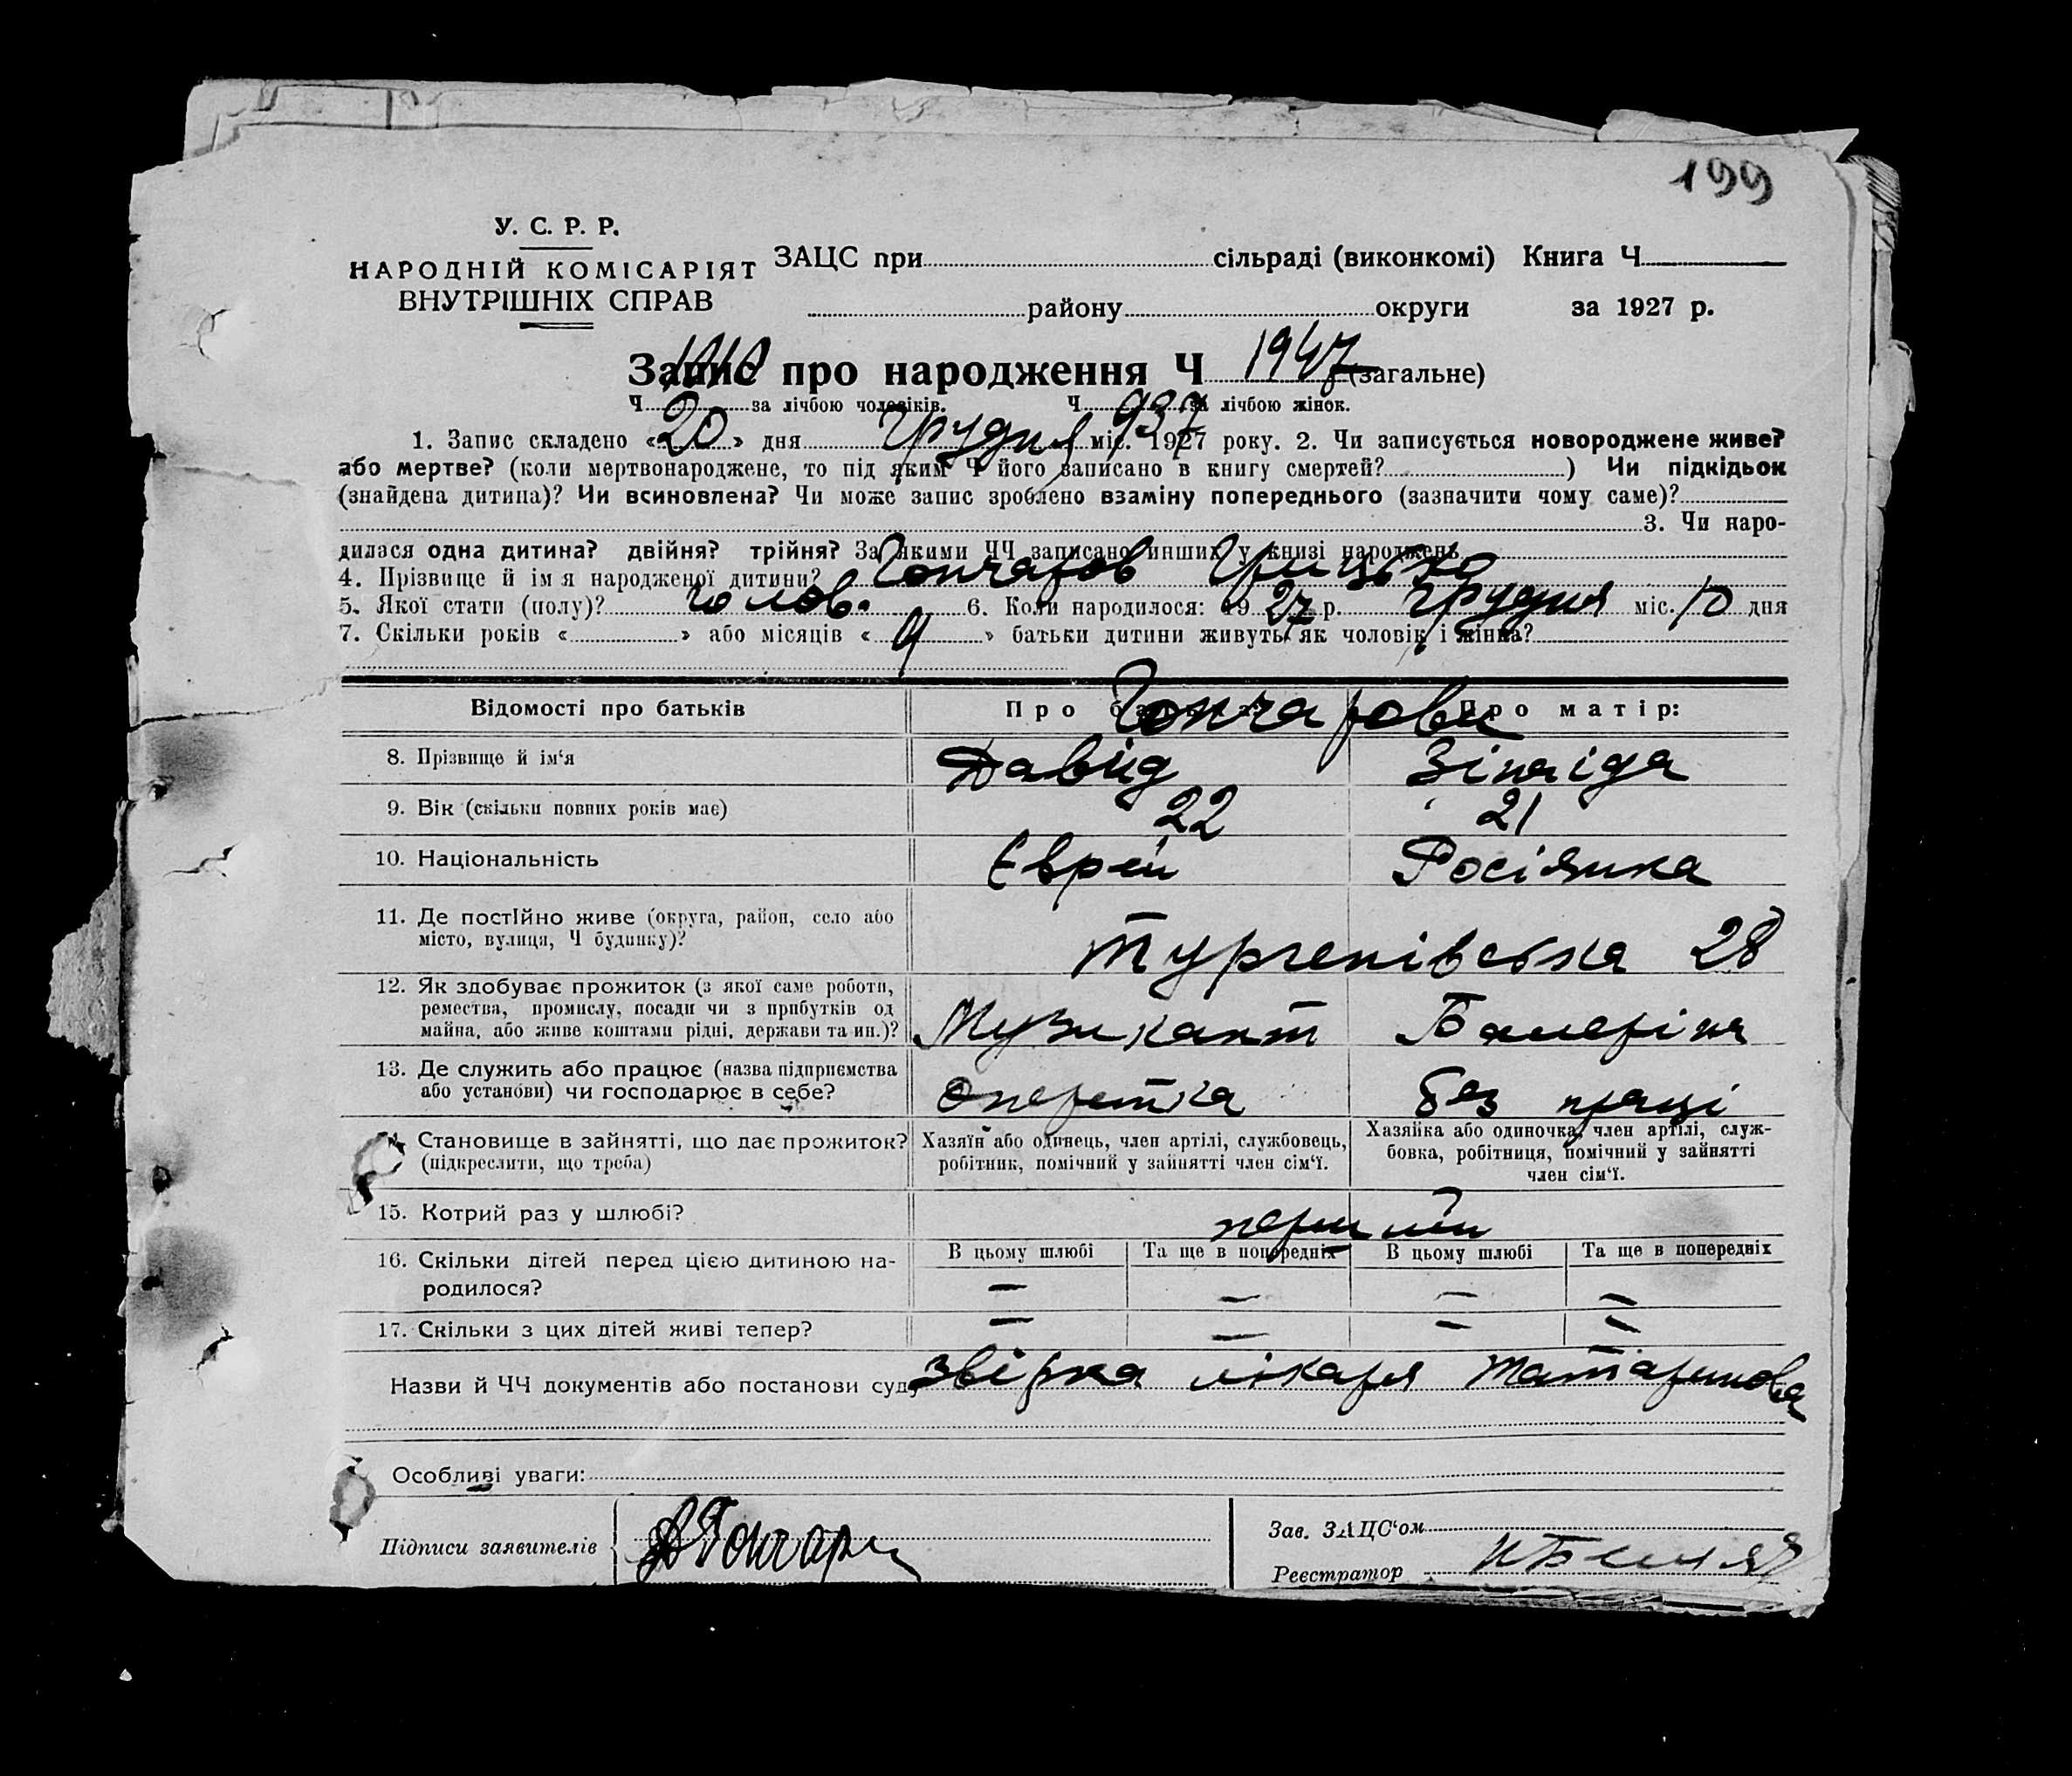 199
У. С. Р. Р.
НАРОДНІЙ КОМІСАРІЯТ
ВНУТРІШНІХ СПРАВ
ЗАЦС при сільраді (виконкомі) Книга Ч
району округи за 1927 р.
Запис про народження Ч 1947 (загальне)
Ч 1010 за лічбою чоловіків. Ч 937 за лічбою жінок.
1. Запис складено «20» дня Грудня міс. 1927 року. 2. Чи записується новороджене живе?
або мертве? (коли мертвонароджене, то під яким Ч його записано в книгу смертей? ) Чи підкідьок
(знайдена дитина)? Чи всиновлена? Чи може запис зроблено взаміну попереднього (зазначити чому саме)?
3. Чи наро-
дилася одна дитина? двійня? трійня? За якими ЧЧ записано инших у книзі народжень
4. Прізвище й ім'я народженої дитини? Гончаров Грицько
5. Якої стати (полу)? чолов. 6. Коли народилося: 1927 р. Грудня міс. 10 дня
7. Скільки років « » або місяців « 9 » батьки дитини живуть як чоловік і жінка?
Відомості про батьків Про батька: Про матір:
Гончарови
8. Прізвище й ім'я Давид Зінаіда
9. Вік (скільки повних років має) 22 21
10. Національність Єврей Росіянка
11. Де постійно живе (округа, район, село або
місто, вулиця, Ч будинку)? Тургенівська 28
12. Як здобуває прожиток (з якої саме роботи,
ремества, промислу, посади чи з прибутків од
майна, або живе коштами рідні, держави та ин.)? Музикант Балеріна
13. Де служить або працює (назва підприємства
або установи) чи господарює в себе? Оперетка без праці
14. Становище в зайнятті, що дає прожиток?
(підкреслити, що треба)
Хазяїн або одинець, член артілі, службовець,
робітник, помічний у зайнятті член сім'ї.
Хазяйка або одиночка, член артілі, служ-
бовка, робітниця, помічний у зайнятті
член сім'ї.
15. Котрий раз у шлюбі? перший
16. Скільки дітей перед цією дитиною на-
родилося?
В цьому шлюбі Та ще в попередніх В цьому шлюбі Та ще в попередніх
— — — —
17. Скільки з цих дітей живі тепер? — — — —
Назви й ЧЧ документів або постанови суду звірка лікаря Татаринова
Особливі уваги:
Підписи заявителів Д Гончаров
Зав. ЗАЦС'ом
Реєстратор